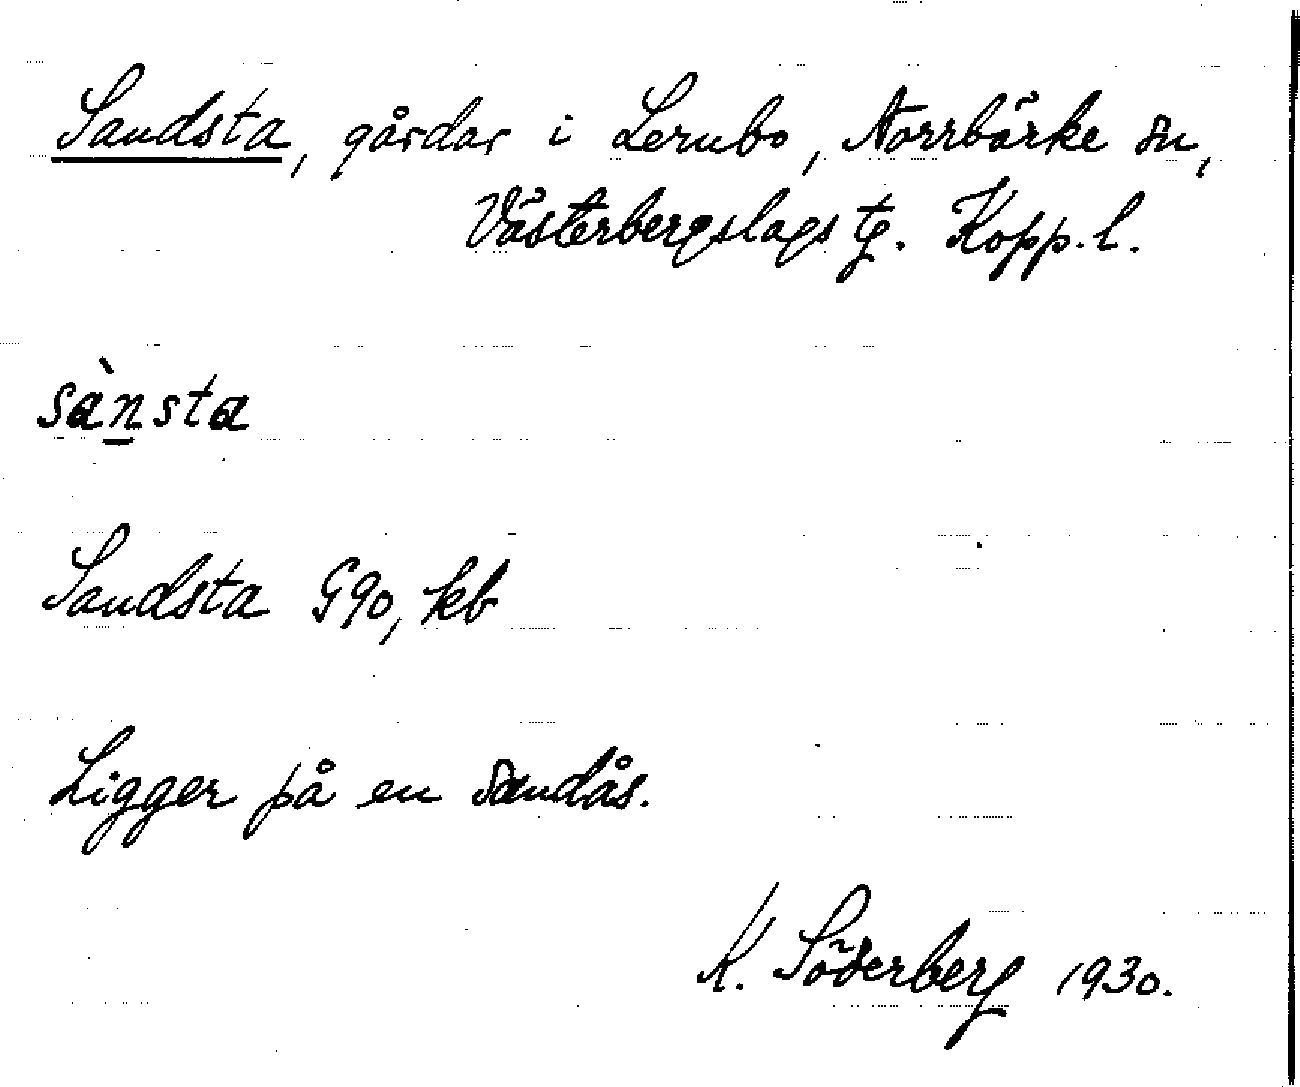 Sandsta, gårdar i Lernbo, Norrbärke sn,
Västerbergslags tg. Kopp. l.
sàn̲sta
Sandsta G90, kb
Ligger på en sandås.
K. Söderberg 1930.